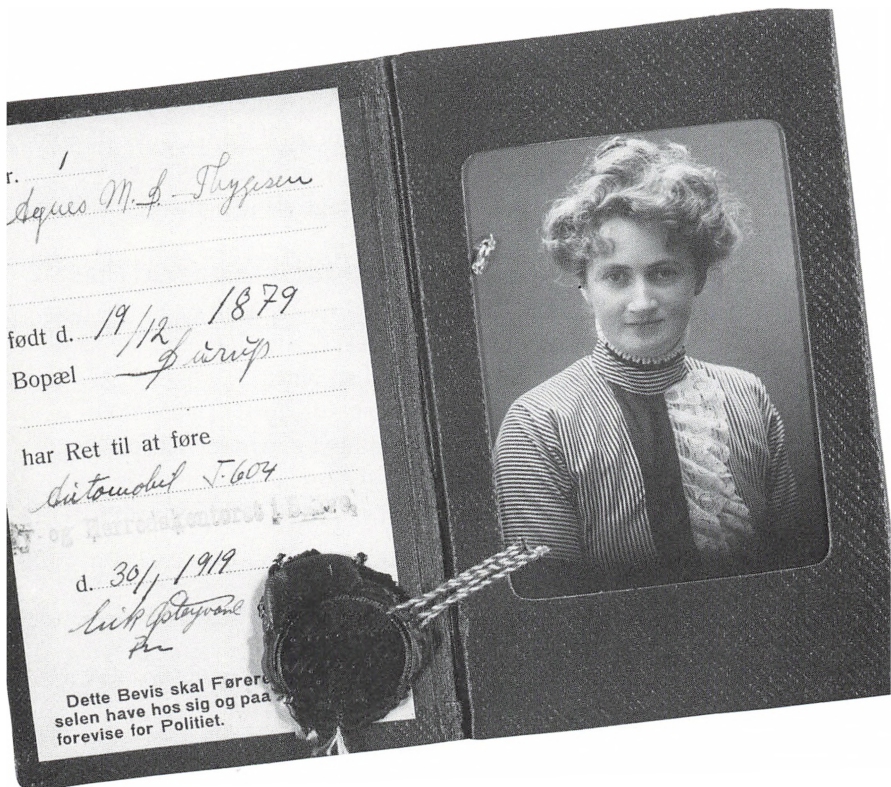 r. 1
Agnes M. S-Thygesen
født d. 19/12 1879
Bopæl
har Ret til at føre
Automobil J-604
og Herredskontoret i
d. 30/1 1919
Erik
Dette Bevis skal Førere
selen have hos sig og paa
forevise for Politiet.